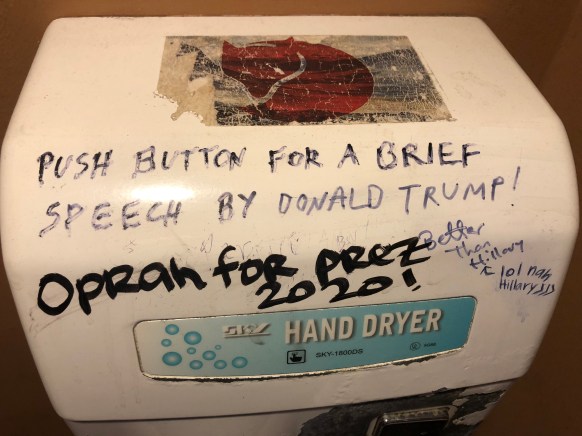 PUSH BUTTON FOR A BRIEF
SPEECH BY DONALD TRUMP!
Better
than
Hillary
lol nah
Hillary
Oprah for prez
2020!
SKY HAND DRYER
SKY-1800DS